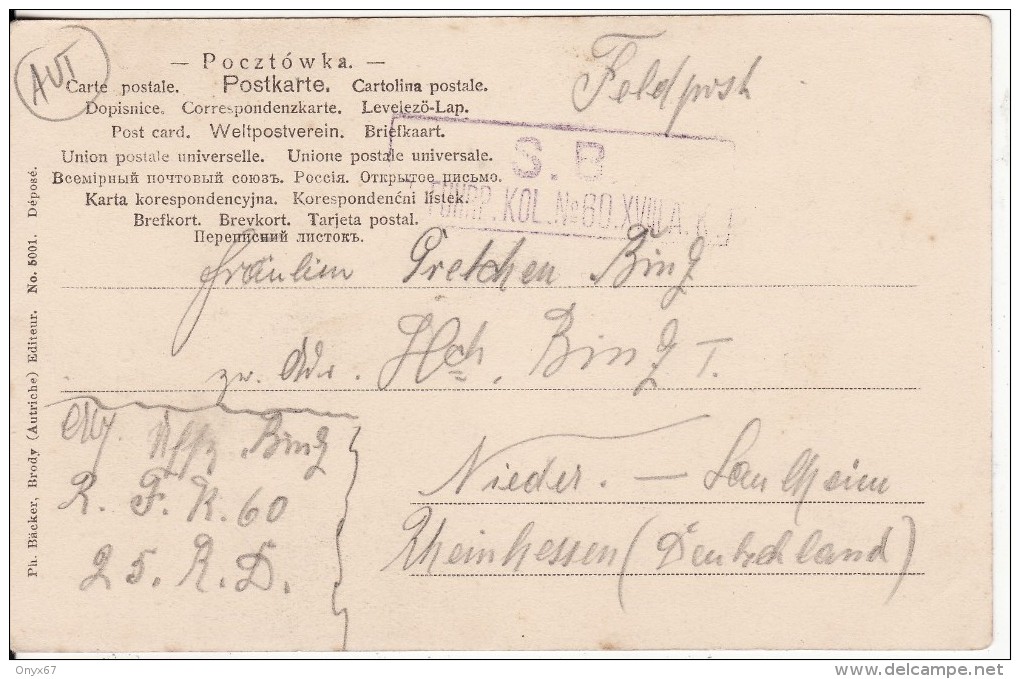 AUT
— Pocztówka. —
Carte postale. Postkarte. Cartolina postale.
Dopisnice. Correspondenzkarte. Levelezö-Lap.
Post card. Weltpostverein. Briefkaart.
Union postale universelle. Unione postale universale.
Всемірный почтовый союзъ. Россія. Открытое письмо.
Karta korespondencyjna. Korespondenčni listek.
Brefkort. Brevkort. Tarjeta postal.
Переписний листокъ.
Feldpost
S. B.
FUHRP. KOL. No 60. XVIII. A. K.
Fräulein Gretchen Bing
Hch. Bing I.
Nieder. – Saulheim
Rheinhessen (Deutschland)
Uffz. Bing
R. F. K. 60
25. R. D.
Ph. Bäcker, Brody (Autriche) Editeur. No. 5001. Déposé.
Onyx67
www.delcampe.net